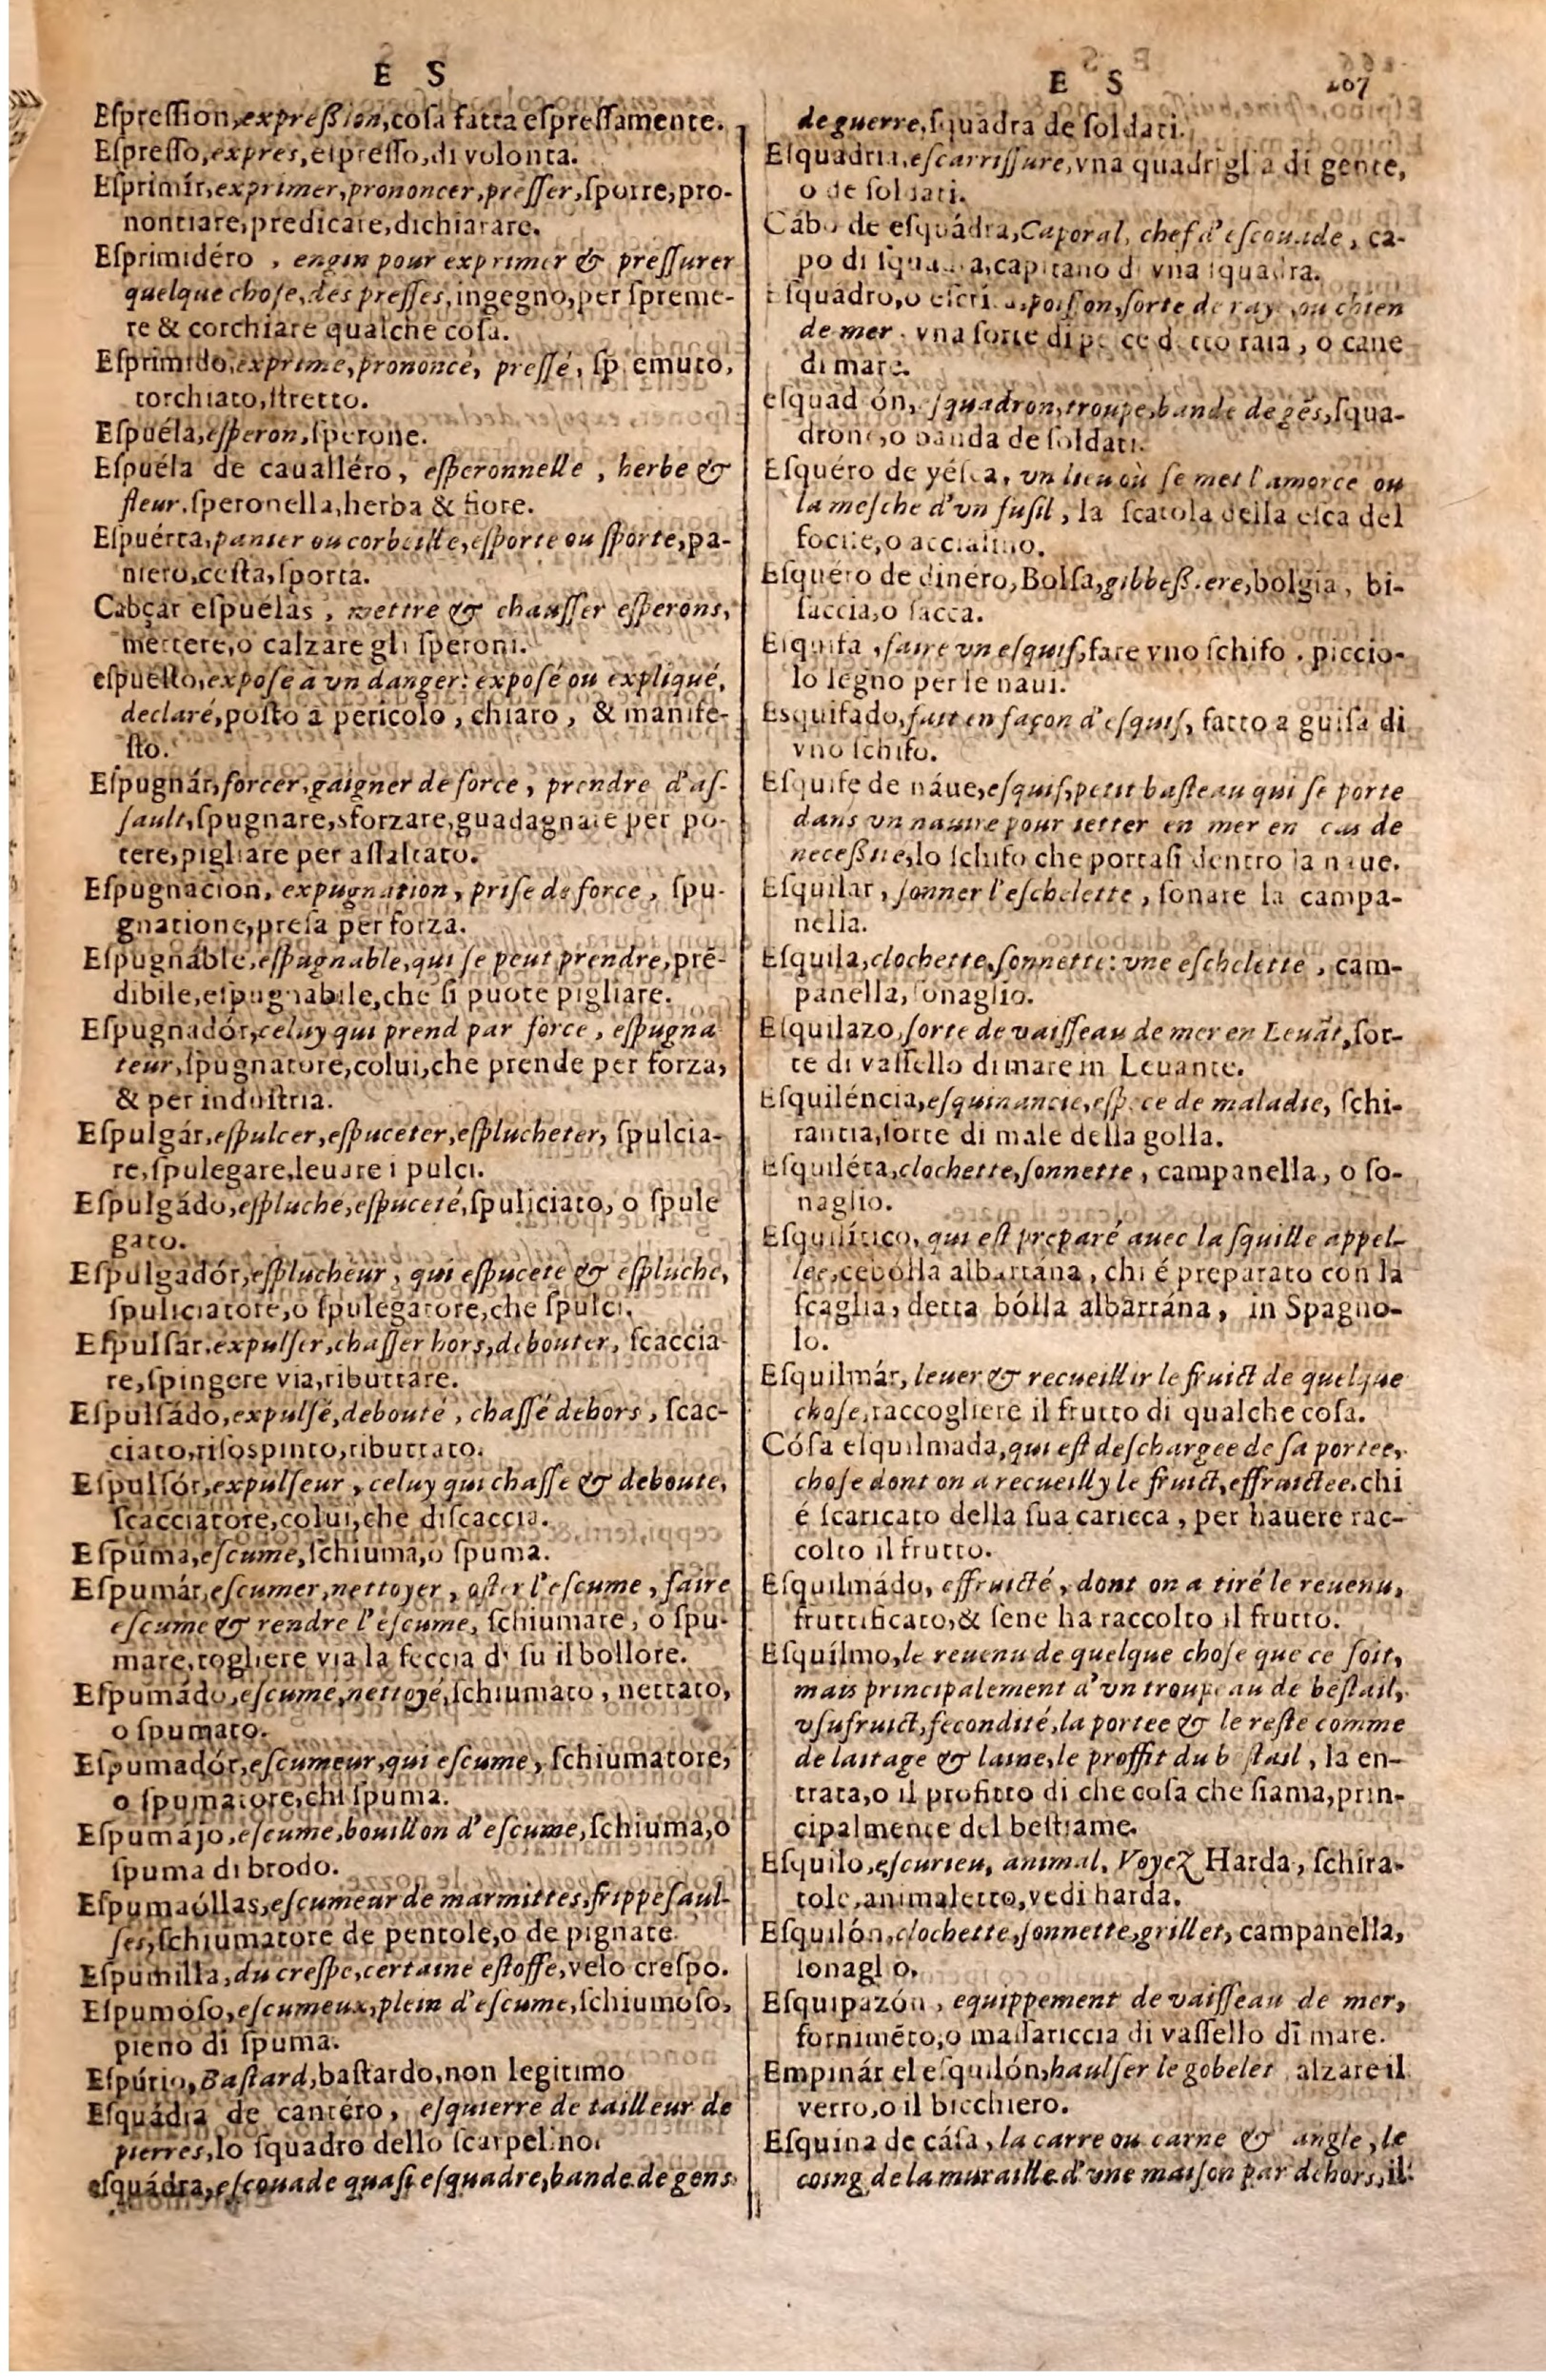 E S
Eſpreſſion, expreßion, coſa fatta eſpreſſamente.
Eſpreſſo, expres, eſpreſſo, di volonta.
Eſprimír, exprimer, prononcer, preſſer, ſporre, pro-
nontiare, predicare, dichiarare.
Eſprimidéro, engin pour exprimer & preſſurer
quelque choſe, des preſſes, ingegno, per ſpreme-
re & corchiare qualche coſa.
Eſprimido, exprimé, prononcé, preſſé, ſp emuto,
torchiato, ſtretto.
Eſpuéla, eſperon, ſperone.
Eſpuéla de caualléro, eſperonnelle, herbe &
fleur, ſperonella, herba & fiore.
Eſpuérta, panier ou corbeille, eſporte ou ſporte, pa-
niero, ceſta, ſporta.
Cabçar eſpuélas, mettre & chauſſer eſperons,
mettere, o calzare gli ſperoni.
eſpueſto, expoſé à vn danger: expoſé ou expliqué,
declaré, poſto a pericolo, chiaro, & manife-
ſto.
Eſpugnár, forcer, gaigner de force, prendre d'aſ-
ſault, ſpugnare, sforzare, guadagnare per po-
tere, pigliare per aſſaltato.
Eſpugnacion, expugnation, priſe de force, ſpu-
gnatione, preſa per forza.
Eſpugnáble, eſpugnable, qui ſe peut prendre, pré-
dibile, eſpugnabile, che ſi puote pigliare.
Eſpugnadór, celuy qui prend par force, eſpugna
teur, ſpugnatore, colui, che prende per forza,
& per induſtria.
Eſpulgár, eſpulcer, eſpuceter, eſplucheter, ſpulcia-
re, ſpulegare, leuare i pulci.
Eſpulgádo, eſpluche, eſpuceté, ſpuliciato, o ſpule
gato.
Eſpulgadór, eſplucheur, qui eſpucete & eſpluche,
ſpuliciatore, o ſpulegatore, che ſpulci.
Eſpulſár, expulſer, chaſſer hors, debouter, ſcaccia-
re, ſpingere via, ributtare.
Eſpulſádo, expulſé, debouté, chaſſé dehors, ſcac-
ciato, riſospinto, ributtato.
Eſpulſór, expulſeur, celuy qui chaſſe & deboute,
ſcacciatore, colui, che diſcaccia.
Eſpúma, eſcume, ſchiuma, o ſpuma.
Eſpumár, eſcumer, nettoyer, oſter l'eſcume, faire
eſcume & rendre l'eſcume, ſchiumare, o ſpu-
mare, togliere via la feccia di ſu il bollore.
Eſpumádo, eſcume, nettoyé, ſchiumato, nettato,
o ſpumato.
Eſpumadór, eſcumeur, qui eſcume, ſchiumatore,
o ſpumatore, chi ſpuma.
Eſpumájo, eſcume, bouillon d'eſcume, ſchiuma, o
ſpuma di brodo.
Eſpumaóllas, eſcumeur de marmittes, frippeſaul-
ſes, ſchiumatore de pentole, o de pignate.
Eſpumilla, du creſpe, certaine eſtoffe, velo creſpo.
Eſpumoſo, eſcumeux, plein d'eſcume, ſchiumoſo,
pieno di ſpuma.
Eſpúrio, Baſtard, baſtardo, non legitimo
Eſquádia de cantéro, eſquierre de tailleur de
pierres, lo ſquadro dello ſcarpelino.
eſquádra, eſcouade quaſi eſquadre, bande de gens
E S 207
de guerre, ſquadra de ſoldati.
Eſquadria, eſcarriſſure, vna quadriglia di gente,
o de ſoldati.
Cábo de eſquádra, Caporal, chef d'eſcouade, ca-
po di ſquadra, capitano di vna ſquadra.
Eſquadro, o eſcri a, poiſſon, ſorte de raye ou chien
de mer, vna ſorte di peſce detto raia, o cane
di mare.
eſquad ón, eſquadron, troupe, bande de gẽs, ſqua-
drone, o banda de ſoldati.
Eſquéro de yéſca, vn lieu où ſe met l'amorce ou
la meſche d'vn fuſil, la ſcatola della eſca del
focile, o acciaiino.
Eſquéro de dinéro, Bolſa, gibbeß.ere, bolgia, bi-
ſaccia, o ſacca.
Eſquifa, faire vn eſquif, fare vno ſchifo, piccio-
lo legno per le naui.
Esquifado, fait en façon d'eſquif, fatto a guiſa di
vno ſchifo.
Eſquife de náue, eſquif, petit baſteau qui ſe porte
dans vn nauire pour ietter en mer en cas de
neceßite, lo ſchifo che portaſi dentro la naue.
Eſquilar, ſonner l'eſchelette, ſonare la campa-
nella.
Eſquila, clochette, ſonnette: vne eſchelette, cam-
panella, ſonaglio.
Eſquilazo, ſorte de vaiſſeau de mer en Leuãt, ſor-
te di vaſſello di mare in Leuante.
Eſquiléncia, eſquinancie, eſpece de maladie, ſchi-
rantia, ſorte di male della golla.
Eſquiléta, clochette, ſonnette, campanella, o ſo-
naglio.
Eſquilítico, qui eſt preparé auec la ſquille appel-
lee, cebólla albarrána, chi é preparato con la
ſcaglia, detta bólla albarrána, in Spagno-
lo.
Eſquilmár, leuer & recueillir le fruict de quelque
choſe, raccogliere il frutto di qualche coſa.
Cóſa eſquilmada, qui eſt deſchargee de ſa portee,
choſe dont on a recueilly le fruict, effruictee, chi
é ſcaricato della ſua caricca, per hauere rac-
colto il frutto.
Eſquilmádo, effruicté, dont on a tiré le reuenu,
fruttificato, & ſene ha raccolto il frutto.
Eſquílmo, le reuenu de quelque choſe que ce ſoit,
mais principalement d'vn troupeau de beſtail,
vſufruict, fecondité, la portee & le reſte comme
de laitage & laine, le proffit du b ſtail, la en-
trata, o il profitto di che coſa che ſiama, prin-
cipalmente del beſtiame.
Eſquilo, eſcurieu, animal, Voyez Harda, ſchira-
tole, animaletto, vedi harda.
Eſquilón, clochette, ſonnette, grillet, campanella,
ſonaglio.
Eſquipazón, equippement de vaiſſeau de mer,
fornimẽto, o maſſariccia di vaſſello di mare.
Empinár el eſquilón, haulſer le gobelet, alzare il
verro, o il bicchiero.
Eſquina de cáſa, la carre ou carne & angle, le
coing de la muraille d'vne maiſon par dehors, il